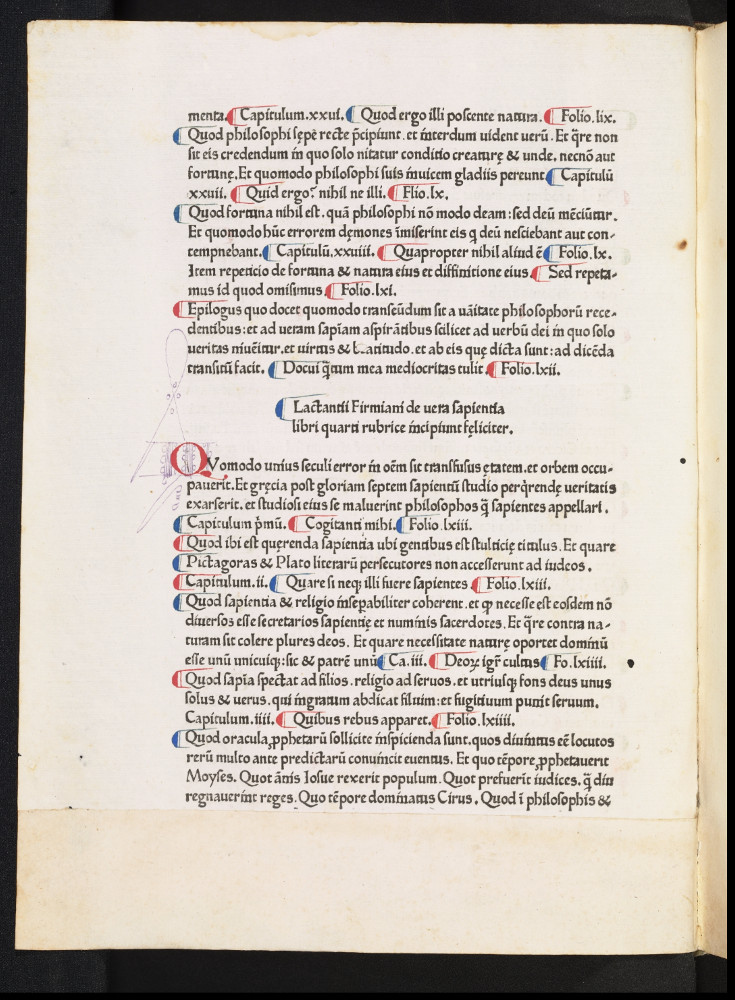 menta. Capitulum.xxvi. Quod ergo illi poscente natura. Folio.lix.
Quod philosophi sępe recte p̄cipiunt.et interdum uident uerū. Et q̄re non
sit eis credendum in quo solo nitatur conditio creaturę & unde, necnō aut
fortunę, Et quomodo philosophi suis inuicem gladiis pereunt Capitulū
xxvii. Quid ergo? nihil ne illi. Flio.lx.
Quod fortuna nihil est. quā philosophi nō modo deam:sed deū mēciūtur.
Et quomodo hūc errorem dęmones īmiserint eis q deū nesciebant aut con-
tempnebant. Capitulū.xxviii. Quapropter nihil aliud ē Folio.lx.
Item repeticio de fortuna & natura eius et diffinitione eius. Sed repeta-
mus id quod omisimus. Folio.lxi.
Epilogus quo docet quomodo transeūdum sit a uāitate philosophorū rece-
dentibus:et ad ueram sapīam aspirātibus scilicet ad uerbū dei in quo solo
ueritas inuēitur.et uirtus & b.atitudo.et ab eis quę dicta sunt:ad dicēda
transitū facit. Docui q̄tum mea mediocritas tulit. Folio.lxii.
Lactantii Firmiani de uera sapientia
libri quarti rubrice incipiunt fęliciter.
QVomodo unius seculi error in oēm sit transfusus ętatem.et orbem occu-
pauerit.Et gręcia post gloriam septem sapientū studio perq̄rendę ueritatis
exarserit.et studiosi eius se maluerint philosophos q̄ sapientes appellari.
Capitulum p̄mū. Cogitanti mihi. Folio.lxiii.
Quod ibi est querenda sapientia ubi gentibus est stulticię titulus. Et quare
Pictagoras & Plato literarū persecutores non accesserunt ad iudeos.
Capitulum.ii. Quare si neqꝫ illi fuere sapientes Folio.lxiii.
Quod sapientia & religio inseꝑabiliter coherent.et ꝙ necesse est eosdem nō
diuersos esse secretarios sapientię et numinis sacerdotes. Et q̄re contra na-
turam sit colere plures deos. Et quare necessitate naturę oportet dominū
esse unū unicuiqꝫ:sic & patrē unū Ca.iii. Deoꝝ igr̄ cultus Fo.lxiiii.
Quod sapīa spectat ad filios.religio ad seruos.et utriusqꝫ fons deus unus
solus & uerus.qui ingratum abdicat filium:et fugitiuum punit seruum.
Capitulum.iiii. Quibus rebus apparet. Folio.lxiiii.
Quod oracula ꝓphetarū sollicite inspicienda sunt.quos diuinitus eē locutos
rerū multo ante predictarū conuincit euentus. Et quo tēpore ꝓphetauerit
Moyses. Quot ānis Iosue rexerit populum. Quot prefuerit iudices.q̄ diu
regnauerint reges. Quo tēpore dominatus Cirus. Quod ī philosophis &